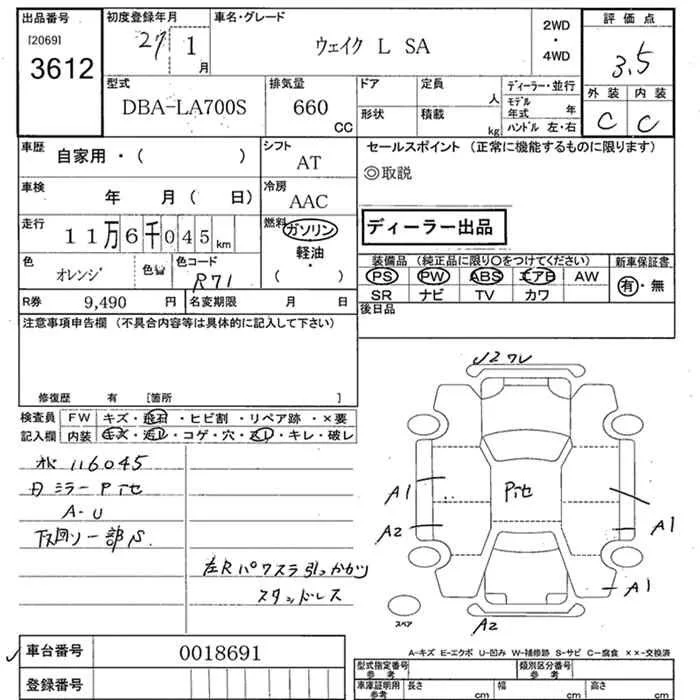 出品番号
[2069]
3612
初度登録年月
27 1 月
車名・グレード
ウェイク L SA
2WD
・
4WD
評価点
3.5
外装 内装
C C
型式
DBA-LA700S
排気量
660
CC
ドア
形状
定員
人
積載
kg
ディーラー・並行
モデル
年式 年
ハンドル 左・右
車歴
自家用・( )
シフト
AT
車検
年 月( 日)
冷房
AAC
走行
11万6千045km
燃料
ガソリン
軽油
・
( )
色
オレンジ
色替
色コード
R71
R券 9,490 円
名変期限 月 日
セールスポイント (正常に機能するものに限ります)
◎取説
ディーラー出品
装備品 (純正品に限り○をつけてください)
PS PW ABS エアB AW
SR ナビ TV カワ
新車保証書
有・無
後日品
注意事項申告欄 (不具合内容等は具体的に記入して下さい)
修復歴 有 [箇所 ]
検査員
記入欄
FW キズ・飛石・ヒビ割・リペア跡・×要
内装 キズ・汚レ・コゲ・穴・スレ・キレ・破レ
116045
ミラー
A-U
下回リ一部S
左Rパワスラ引っかかり
スタッドレス
J2ワレ
A1
A2
A1
A1
A2
スペア
A-キズ E-エクボ U-凹み W-補修跡 S-サビ C-腐食 ××-交換済
車台番号 0018691
登録番号
型式指定番号
参考
類別区分番号
参考
車庫証明用
参考
長さ cm
幅 cm
高さ cm